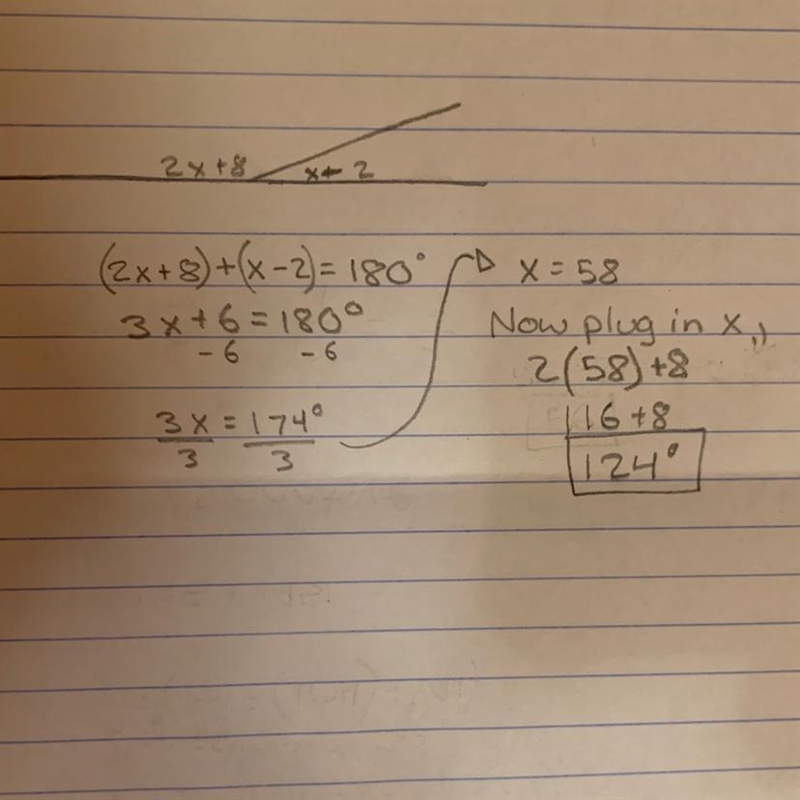 2x+8 x-2
(2x+8)+(x-2)=180°
3x+6=180°
-6 -6
3x = 174°
3 3
x = 58
Now plug in x,,
2(58)+8
116+8
124°